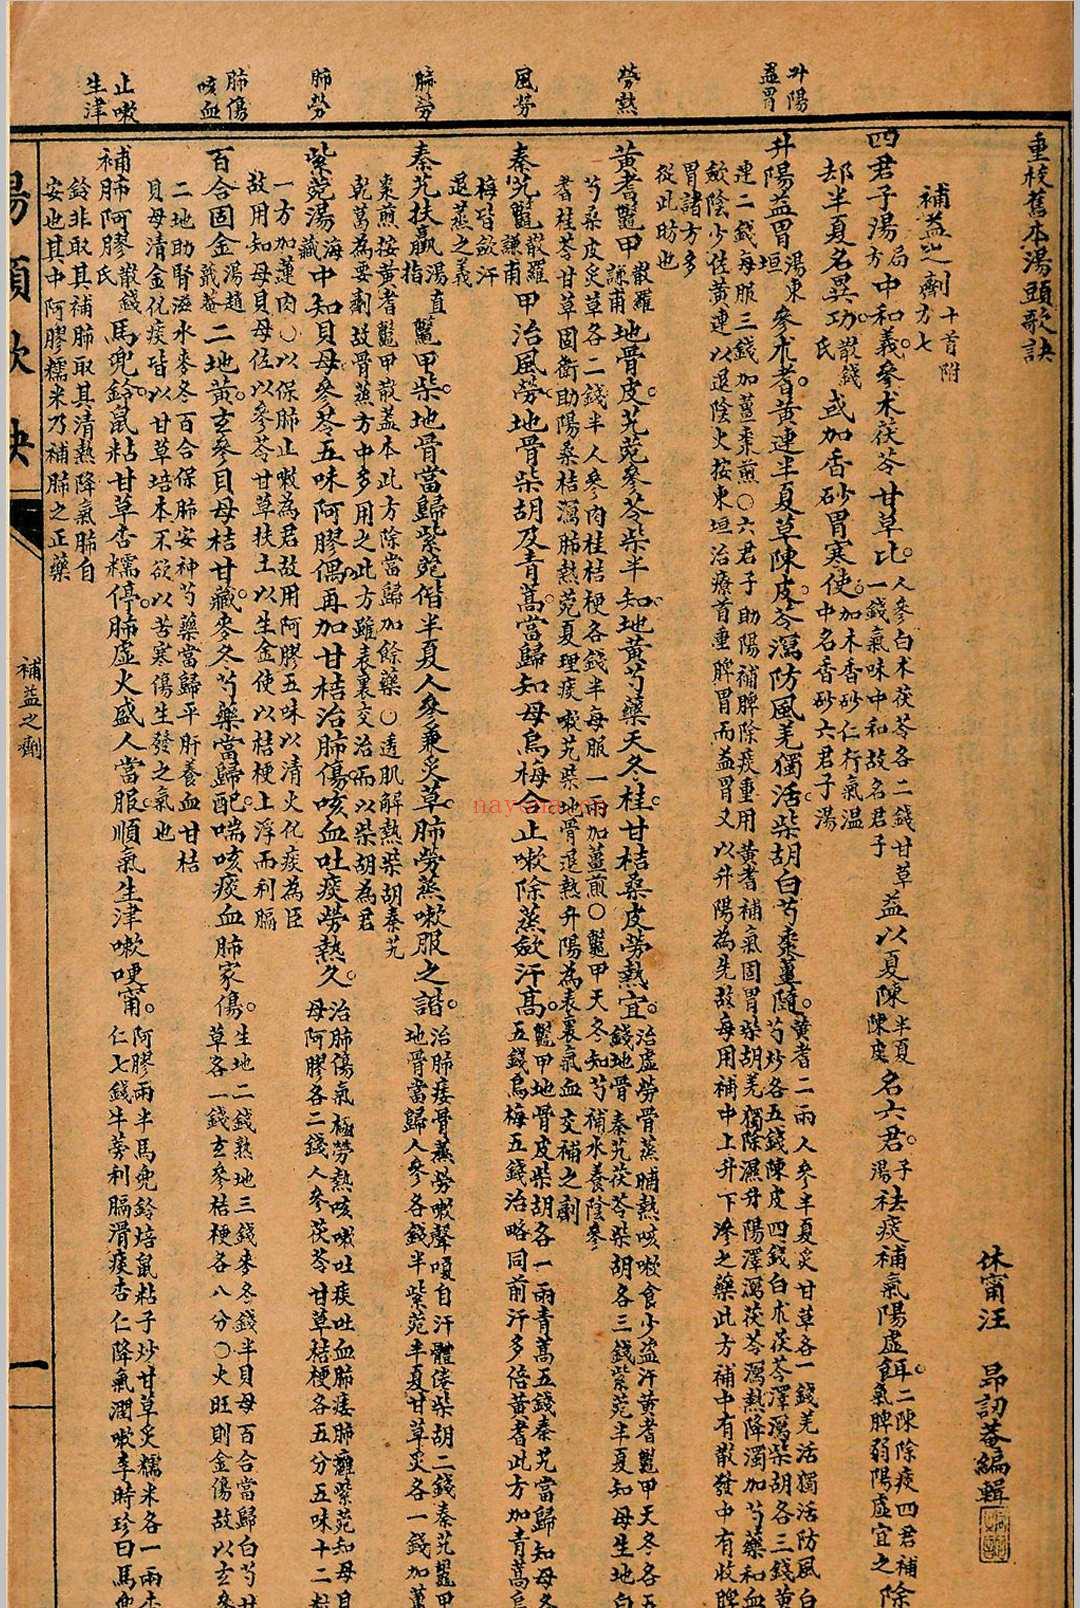 升陽
益胃
勞熱
風勞
肺勞
肺勞
肺傷
咳血
止嗽
生津
重校舊本湯頭歌訣
休甯汪 昂訒菴編輯
補益之劑
十首附
方七
四君子湯
局
方
中和義。參朮茯苓甘草比。
人參白朮茯苓各二錢甘草
一錢氣味中和故名君子
益以夏陳
半夏
陳皮
名六君。
子
湯
祛痰補氣陽虛餌。
二陳除痰四君補
氣脾弱陽虛宜之
除
却半夏名異功
散錢
氏
或加香砂胃寒使。
加木香砂仁行氣溫
中名香砂六君子湯
升陽益胃
湯東
垣
參朮耆。黃連半夏草陳皮。苓瀉防風羌獨活。柴胡白芍棗薑隨。
黃耆二兩人參半夏炙甘草各一錢羌活獨活防風白
芍炒各五錢陳皮四錢白朮茯苓澤瀉柴胡各三錢黃
連二錢每服三錢加薑棗煎○六君子助陽補脾除痰重用黃耆補氣固胃柴胡羌獨除濕升陽澤瀉茯苓瀉熱降濁加芍藥和血
斂陰少佐黃連以退陰火按東垣治療首重脾胃而益胃又以升陽為先故每用補中上升下滲之藥此方補中有散發中有收脾
胃諸方多
從此昉也
黃耆鱉甲
散羅
謙甫
地骨皮。艽菀參苓柴半知。地黃芍藥天冬桂。甘桔桑皮勞熱宜。
治虛勞骨蒸晡熱咳嗽食少盜汗黃耆鱉甲天冬各五
錢地骨秦艽茯苓柴胡各三錢紫菀半夏知母生地白
芍桑皮炙草各二錢半人參肉桂桔梗各錢半每服一兩加薑煎○鱉甲天冬知芍補水養陰參
耆桂苓甘草固衛助陽桑桔瀉肺熱菀夏理痰嗽艽柴地骨退熱升陽為表裏氣血交補之劑
秦艽鱉
散羅
謙甫
甲治風勞。地骨柴胡及青蒿。當歸知母烏梅合。止嗽除蒸斂汗高。
鱉甲地骨皮柴胡各一兩青蒿五錢秦艽當歸知母各
五錢烏梅五錢治略同前汗多倍黃耆此方加青蒿烏
梅皆斂汗
退蒸之義
秦艽扶羸
湯直
指
鱉甲柴。地骨當歸紫菀偕。半夏人參兼炙草。肺勞蒸嗽服之諧。
治肺痿骨蒸勞嗽聲嗄自汗體倦柴胡二錢秦艽鱉甲
地骨當歸人參各錢半紫菀半夏甘草炙各一錢加薑
棗煎按黃耆鱉甲散蓋本此方除當歸加餘藥○透肌解熱柴胡秦艽
乾葛為要劑故骨蒸方中多用之此方雖表裏交治而以柴胡為君
紫菀湯
海
藏
中知貝母。參苓五味阿膠偶。再加甘桔治肺傷。咳血吐痰勞熱久。
治肺傷氣極勞熱咳嗽吐痰吐血肺痿肺癰紫菀知母貝
母阿膠各二錢人參茯苓甘草桔梗各五分五味十二粒
一方加蓮肉○以保肺止嗽為君故用阿膠五味以清火化痰為臣
故用知母貝母佐以參苓甘草扶土以生金使以桔梗上浮而利膈
百合固金
湯趙
蕺菴
二地黃。玄參貝母桔甘藏。麥冬芍藥當歸配。喘咳痰血肺家傷。
生地二錢熟地三錢麥冬錢半貝母百合當歸白芍甘
草各一錢玄參桔梗各八分○火旺則金傷故以玄參
二地助腎滋水麥冬百合保肺安神芍藥當歸平肝養血甘桔
貝母清金化痰皆以甘草培本不欲以苦寒傷生發之氣也
補肺阿膠
散錢
氏
馬兜鈴。鼠粘甘草杏糯停。肺虛火盛人當服。順氣生津嗽哽甯。
阿膠兩半馬兜鈴焙鼠粘子炒甘草炙糯米各一兩杏
仁七錢牛蒡利膈滑痰杏仁降氣潤嗽李時珍曰馬兜
鈴非取其補肺取其清熱降氣肺自
安也其中阿膠糯米乃補肺之正藥
湯頭歌訣
補益之劑
一